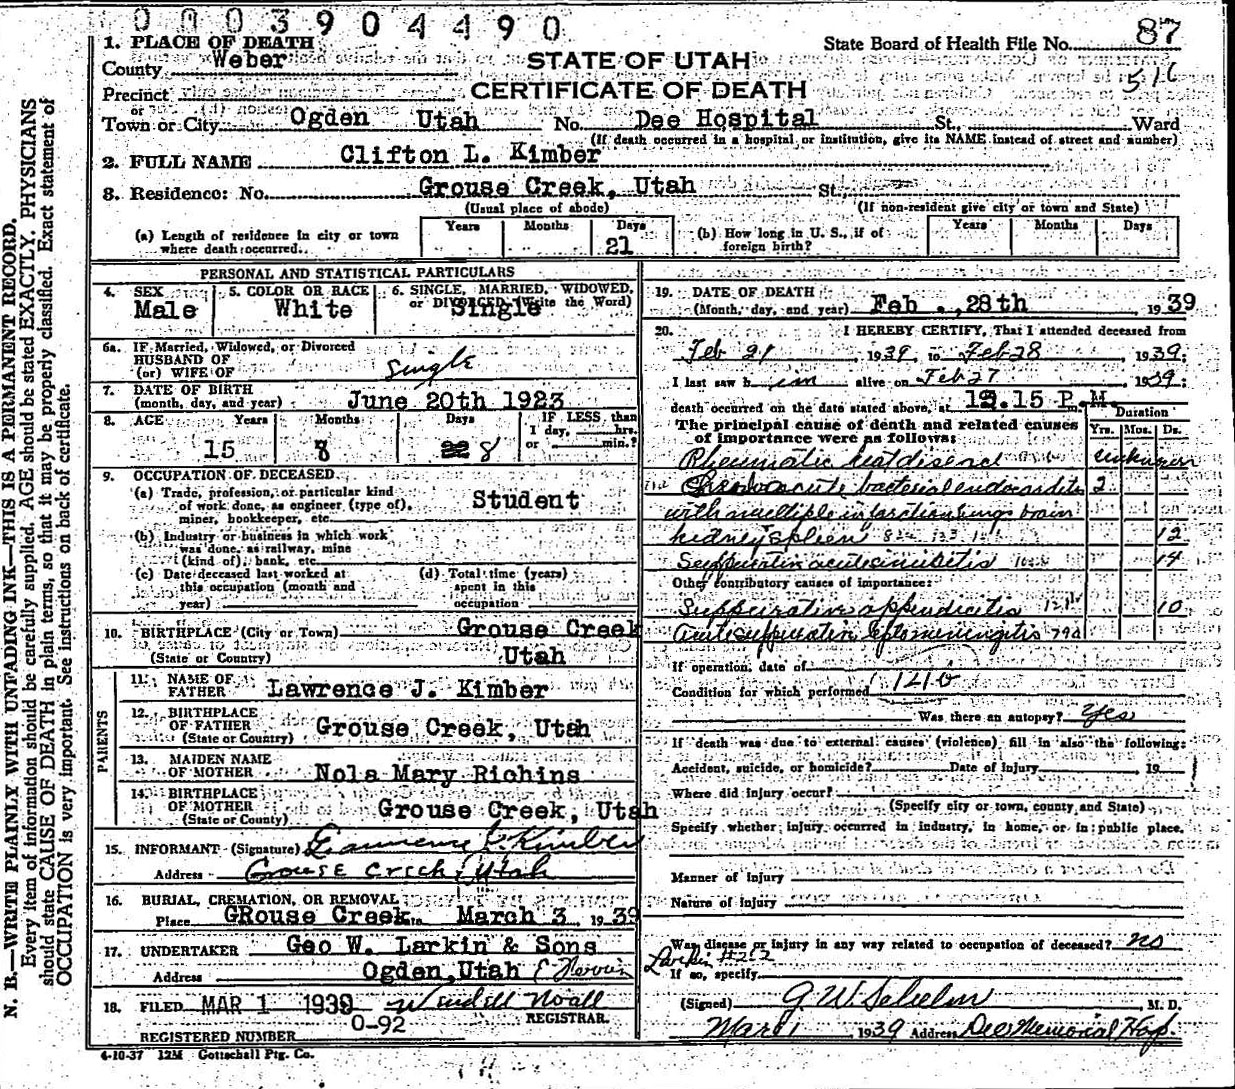 0003904490
1. PLACE OF DEATH
State Board of Health File No. 87
County Weber
STATE OF UTAH
516
Precinct
CERTIFICATE OF DEATH
or
Town or City Ogden Utah No. Dee Hospital St., Ward
(If death occurred in a hospital or institution, give its NAME instead of street and number)
2. FULL NAME Clifton L. Kimber
3. Residence: No. Grouse Creek, Utah St.
(Usual place of abode) (If non-resident give city or town and State)
(a) Length of residence in city or town where death occurred. Years Months Days 21
(b) How long in U. S., if of foreign birth? Years Months Days
PERSONAL AND STATISTICAL PARTICULARS
4. SEX Male
5. COLOR OR RACE White
6. SINGLE, MARRIED, WIDOWED, or DIVORCED (Write the Word) Single
6a. IF Married, Widowed, or Divorced
HUSBAND OF
(or) WIFE OF Single
7. DATE OF BIRTH
(month, day, and year) June 20th 1923
8. AGE Years 15 Months 8 Days 8
IF LESS than 1 day, hrs. or min.?
9. OCCUPATION OF DECEASED
(a) Trade, profession, or particular kind of work done, as engineer (type of), miner, bookkeeper, etc. Student
(b) Industry or business in which work was done, as railway, mine (kind of), bank, etc.
(c) Date deceased last worked at this occupation (month and year)
(d) Total time (years) spent in this occupation
10. BIRTHPLACE (City or Town) Grouse Creek
(State or Country) Utah
PARENTS
11. NAME OF FATHER Lawrence J. Kimber
12. BIRTHPLACE OF FATHER (State or Country) Grouse Creek, Utah
13. MAIDEN NAME OF MOTHER Nola Mary Richins
14. BIRTHPLACE OF MOTHER (State or County) Grouse Creek, Utah
15. INFORMANT (Signature) Lawrence J. Kimber
Address Grouse Creek, Utah
16. BURIAL, CREMATION, OR REMOVAL
Place GRouse Creek March 3 1939
17. UNDERTAKER Geo W. Larkin & Sons
Address Ogden, Utah
18. FILED MAR 1 1939 Wendell Noall
REGISTRAR.
REGISTERED NUMBER 0-92
4-10-37 12M Gottschall Ptg. Co.
19. DATE OF DEATH
(Month, day, and year) Feb ., 28th 1939
20. I HEREBY CERTIFY, That I attended deceased from
Feb 21, 1939, to Feb 28, 1939;
I last saw him alive on Feb 27 1939;
death occurred on the date stated above, at 12.15 P.M.
The principal cause of death and related causes of importance were as follows:
Duration
Yrs. Mos. Ds.
Rheumatic heart disease unknown
acute bacterial endocarditis 2
with multiple infarction lungs brain
kidney spleen 12
Suppurative acute sinusitis 14
Other contributory causes of importance:
Suppurative appendicitis 10
Acute suppurative leptomeningitis 79a
If operation, date of
Condition for which performed 121b
Was there an autopsy? Yes
If death was due to external causes (violence) fill in also the following:
Accident, suicide, or homicide? Date of injury , 19
Where did injury occur?
(Specify city or town, county and State)
Specify whether injury occurred in industry, in home, or in public place.
Manner of injury
Nature of injury
Was disease or injury in any way related to occupation of deceased? no
Larkin #262
If so, specify
(Signed) M. D.
Mar 1 1939 Address Dee Memorial Hosp.
N. B.—WRITE PLAINLY WITH UNFADING INK—THIS IS A PERMANENT RECORD.
Every item of information should be carefully supplied. AGE should be stated EXACTLY. PHYSICIANS
should state CAUSE OF DEATH in plain terms, so that it may be properly classified. Exact statement of
OCCUPATION is very important. See instructions on back of certificate.